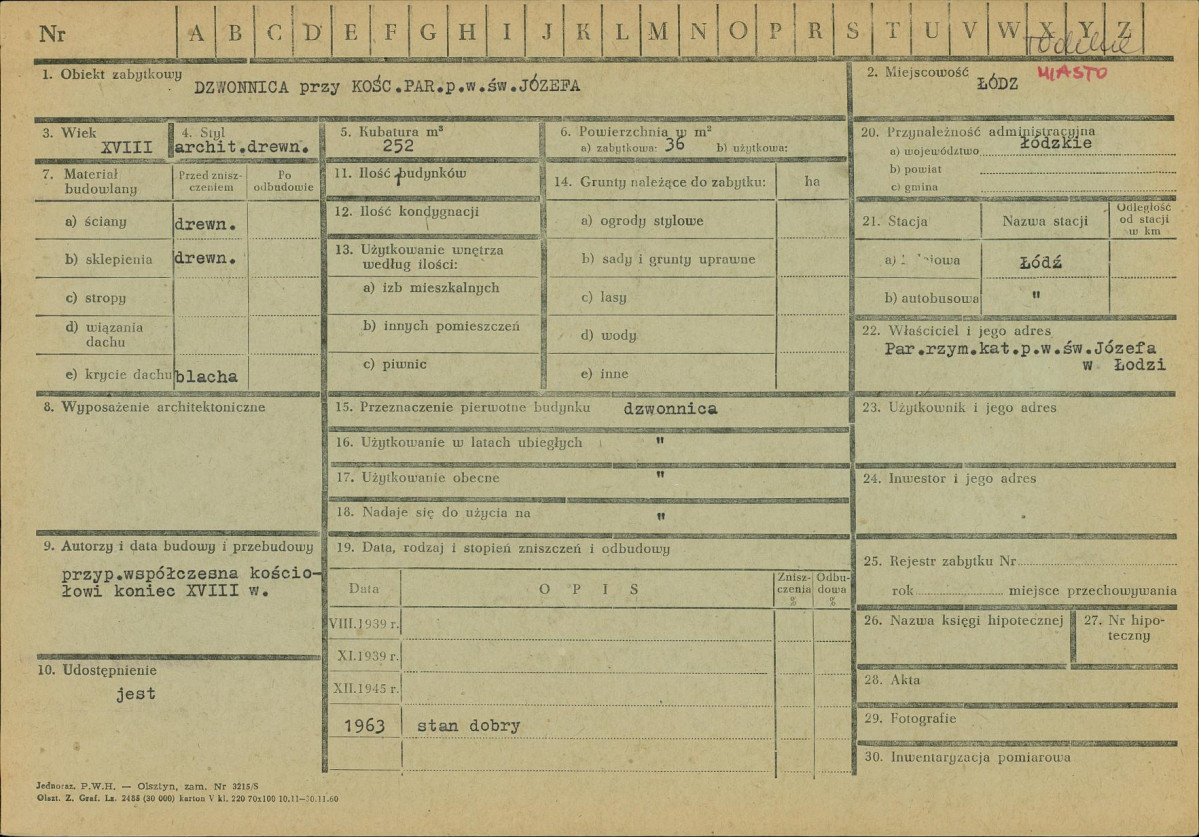 Nr A B C D E F G H I J K L M N O P R S T U V W X Y Z
łódzkie
1. Obiekt zabytkowy
DZWONNICA przy KOŚC.PAR.p.w.św.JÓZEFA
2. Miejscowość
MIASTO
ŁÓDZ
3. Wiek
XVIII
4. Styl
archit.drewn.
5. Kubatura m³
252
6. Powierzchnia w m²
a) zabytkowa: 36 b) użytkowa:
20. Przynależność administracyjna
a) województwo łódzkie
b) powiat
c) gmina
7. Materiał budowlany
Przed znisz-
czeniem
Po
odbudowie
a) ściany drewn.
b) sklepienia drewn.
c) stropy
d) wiązania
dachu
e) krycie dachu blacha
11. Ilość budynków
12. Ilość kondygnacji
13. Użytkowanie wnętrza
według ilości:
a) izb mieszkalnych
b) innych pomieszczeń
c) piwnic
14. Grunty należące do zabytku: ha
a) ogrody stylowe
b) sady i grunty uprawne
c) lasy
d) wody
e) inne
21. Stacja Nazwa stacji
Odległość
od stacji
w km
a) Łódź
b) autobusowa "
22. Właściciel i jego adres
Par.rzym.kat.p.w.św.Józefa
w Łodzi
8. Wyposażenie architektoniczne
15. Przeznaczenie pierwotne budynku dzwonnica
16. Użytkowanie w latach ubiegłych "
17. Użytkowanie obecne "
18. Nadaje się do użycia na "
23. Użytkownik i jego adres
24. Inwestor i jego adres
9. Autorzy i data budowy i przebudowy
przyp.współczesna kościo-
łowi koniec XVIII w.
10. Udostępnienie
jest
19. Data, rodzaj i stopień zniszczeń i odbudowy
Data O P I S
Znisz-
czenia
%
Odbu-
dowa
%
VIII.1939 r.
XI.1939 r.
XII.1945 r.
1963 stan dobry
25. Rejestr zabytku Nr
rok miejsce przechowywania
26. Nazwa księgi hipotecznej
27. Nr hipo-
teczny
28. Akta
29. Fotografie
30. Inwentaryzacja pomiarowa
Jednoraz. P.W.H. — Olsztyn, zam. Nr 3215/S
Olszt. Z. Graf. Lz. 2485 (30 000) karton V kl. 220 70x100 10.11—30.11.60